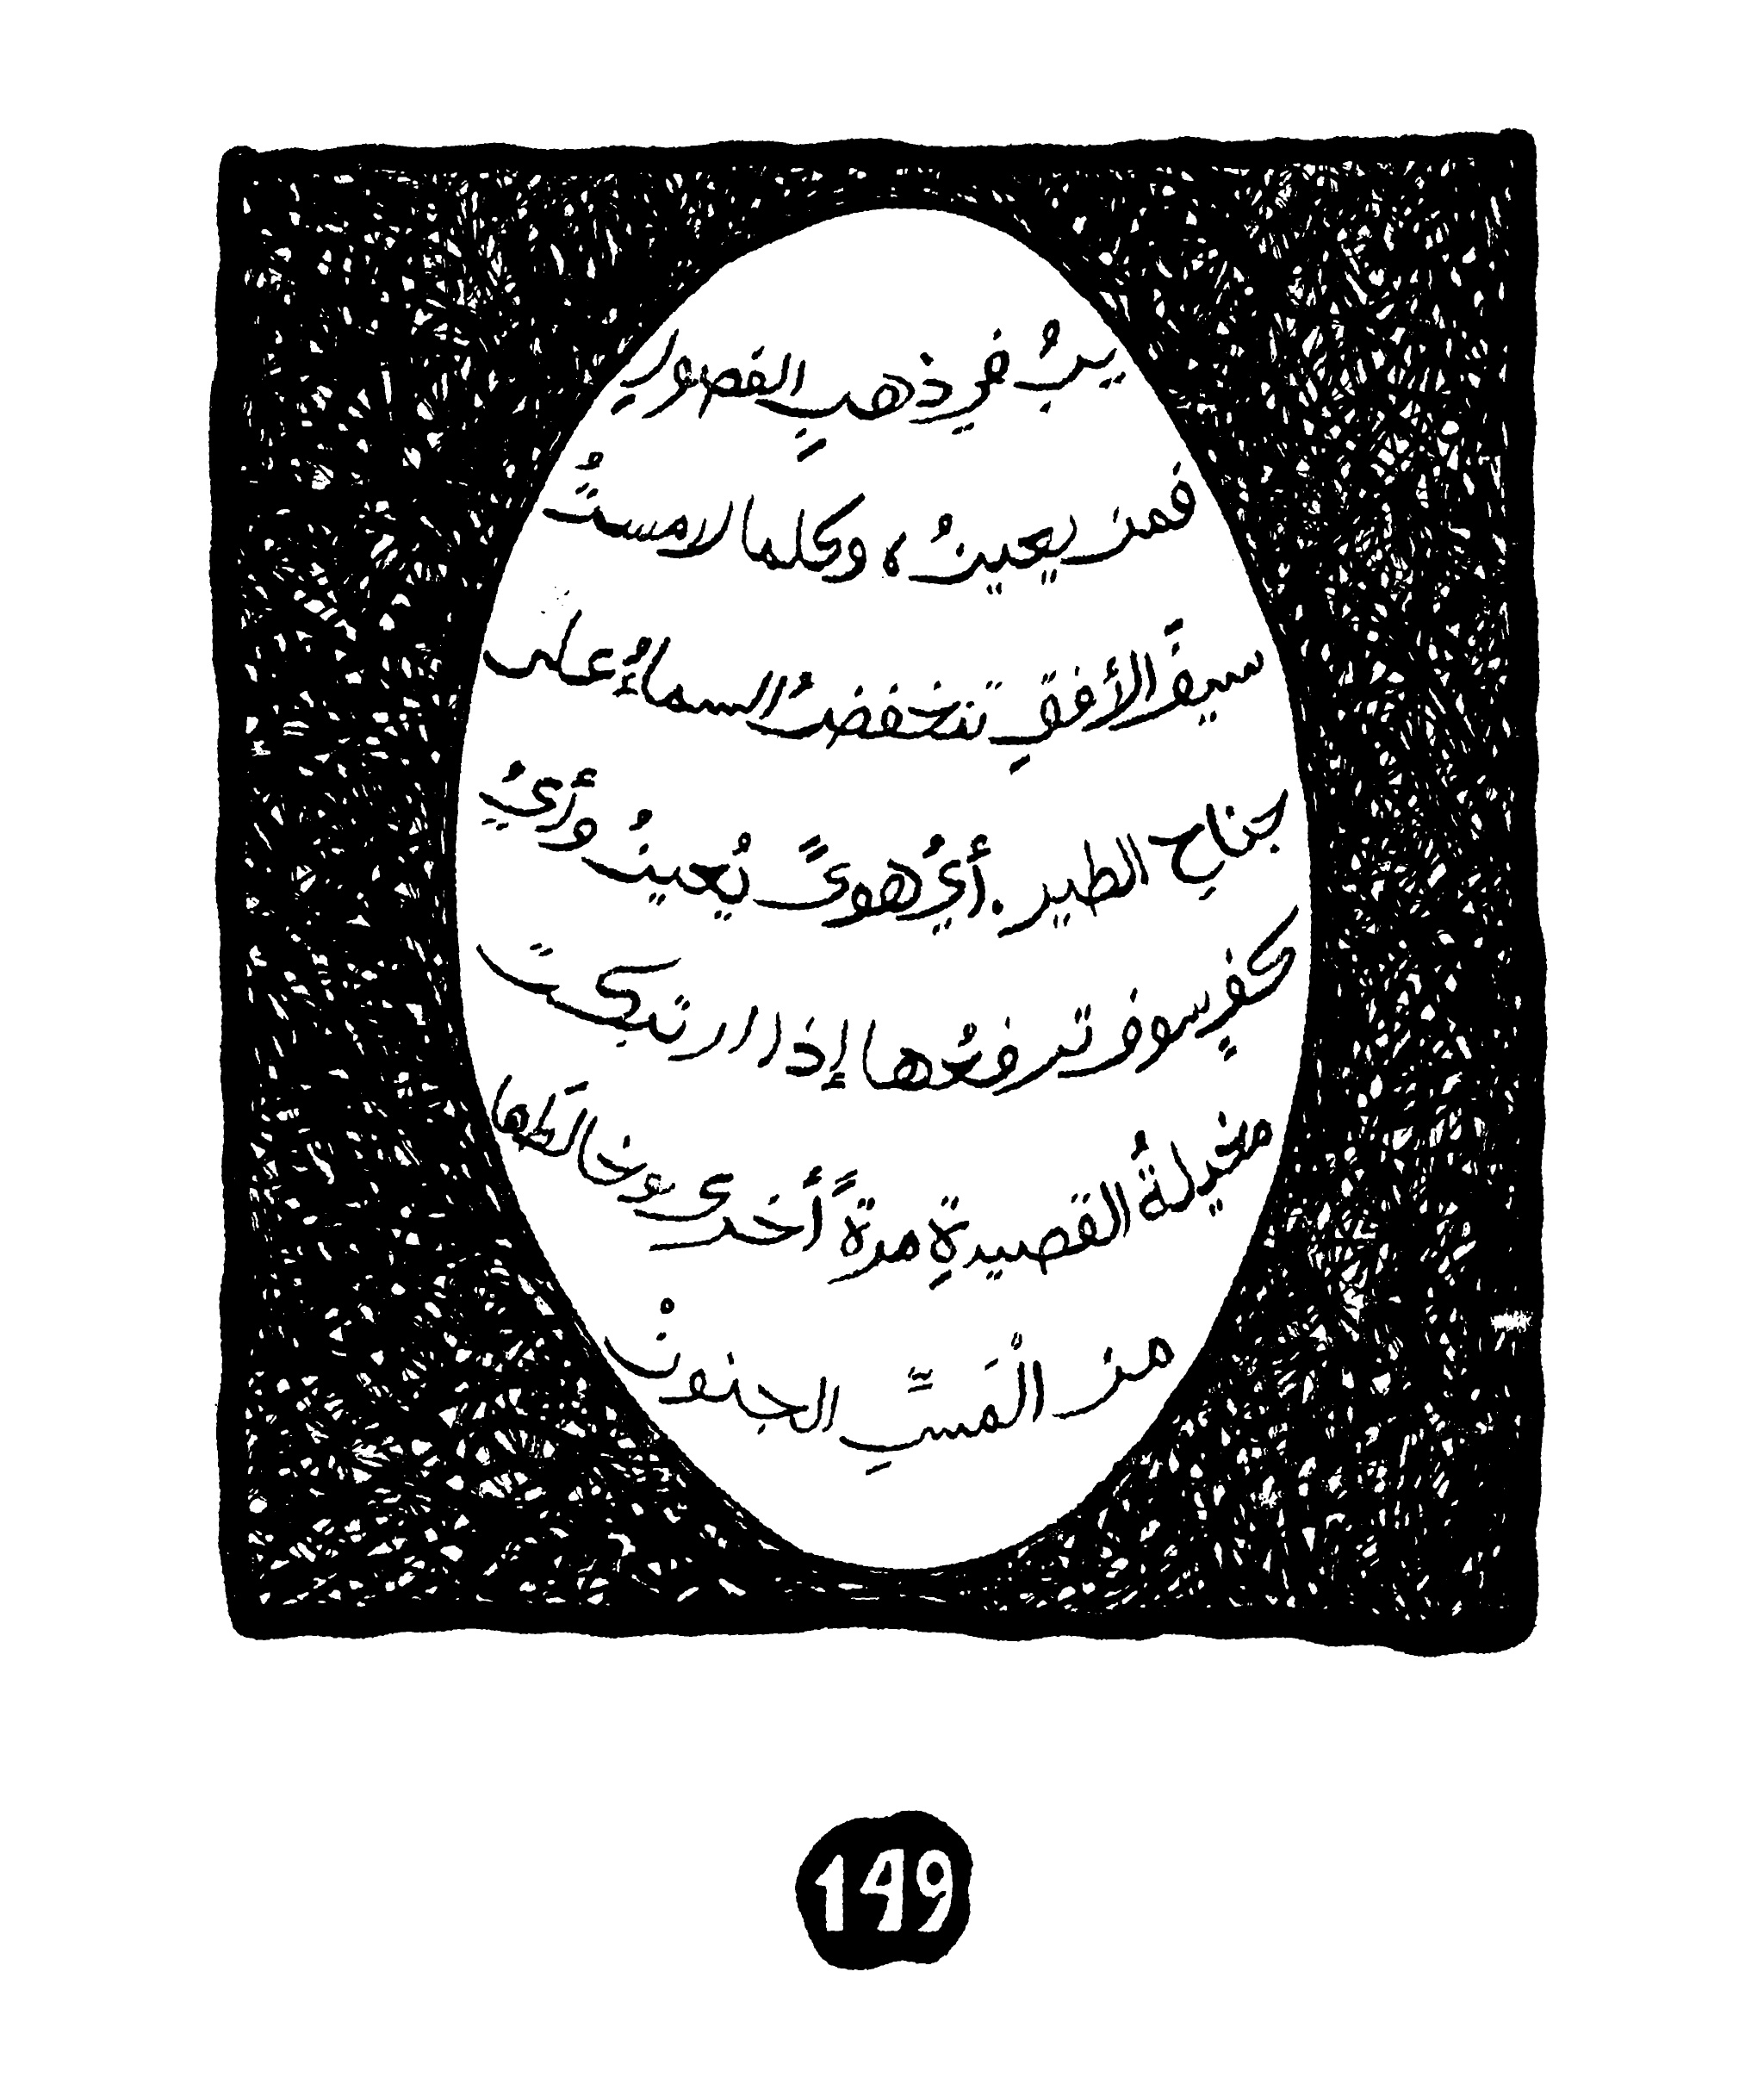 يبُ في ذهبِ الفصولِ
فمن يعينُ، وكلما لامستُ
سيفَ الأفقِ تنخفضُ السماءُ على
جناحِ الطير. أيُّ هوىً يُعينُ وأيُّ
كفٍ سوف ترفعُها إذا ارتبكتْ
مخيلةُ القصيدةِ مرةً أخرى وخالطَها
من الْمَسِّ الجنونْ
149